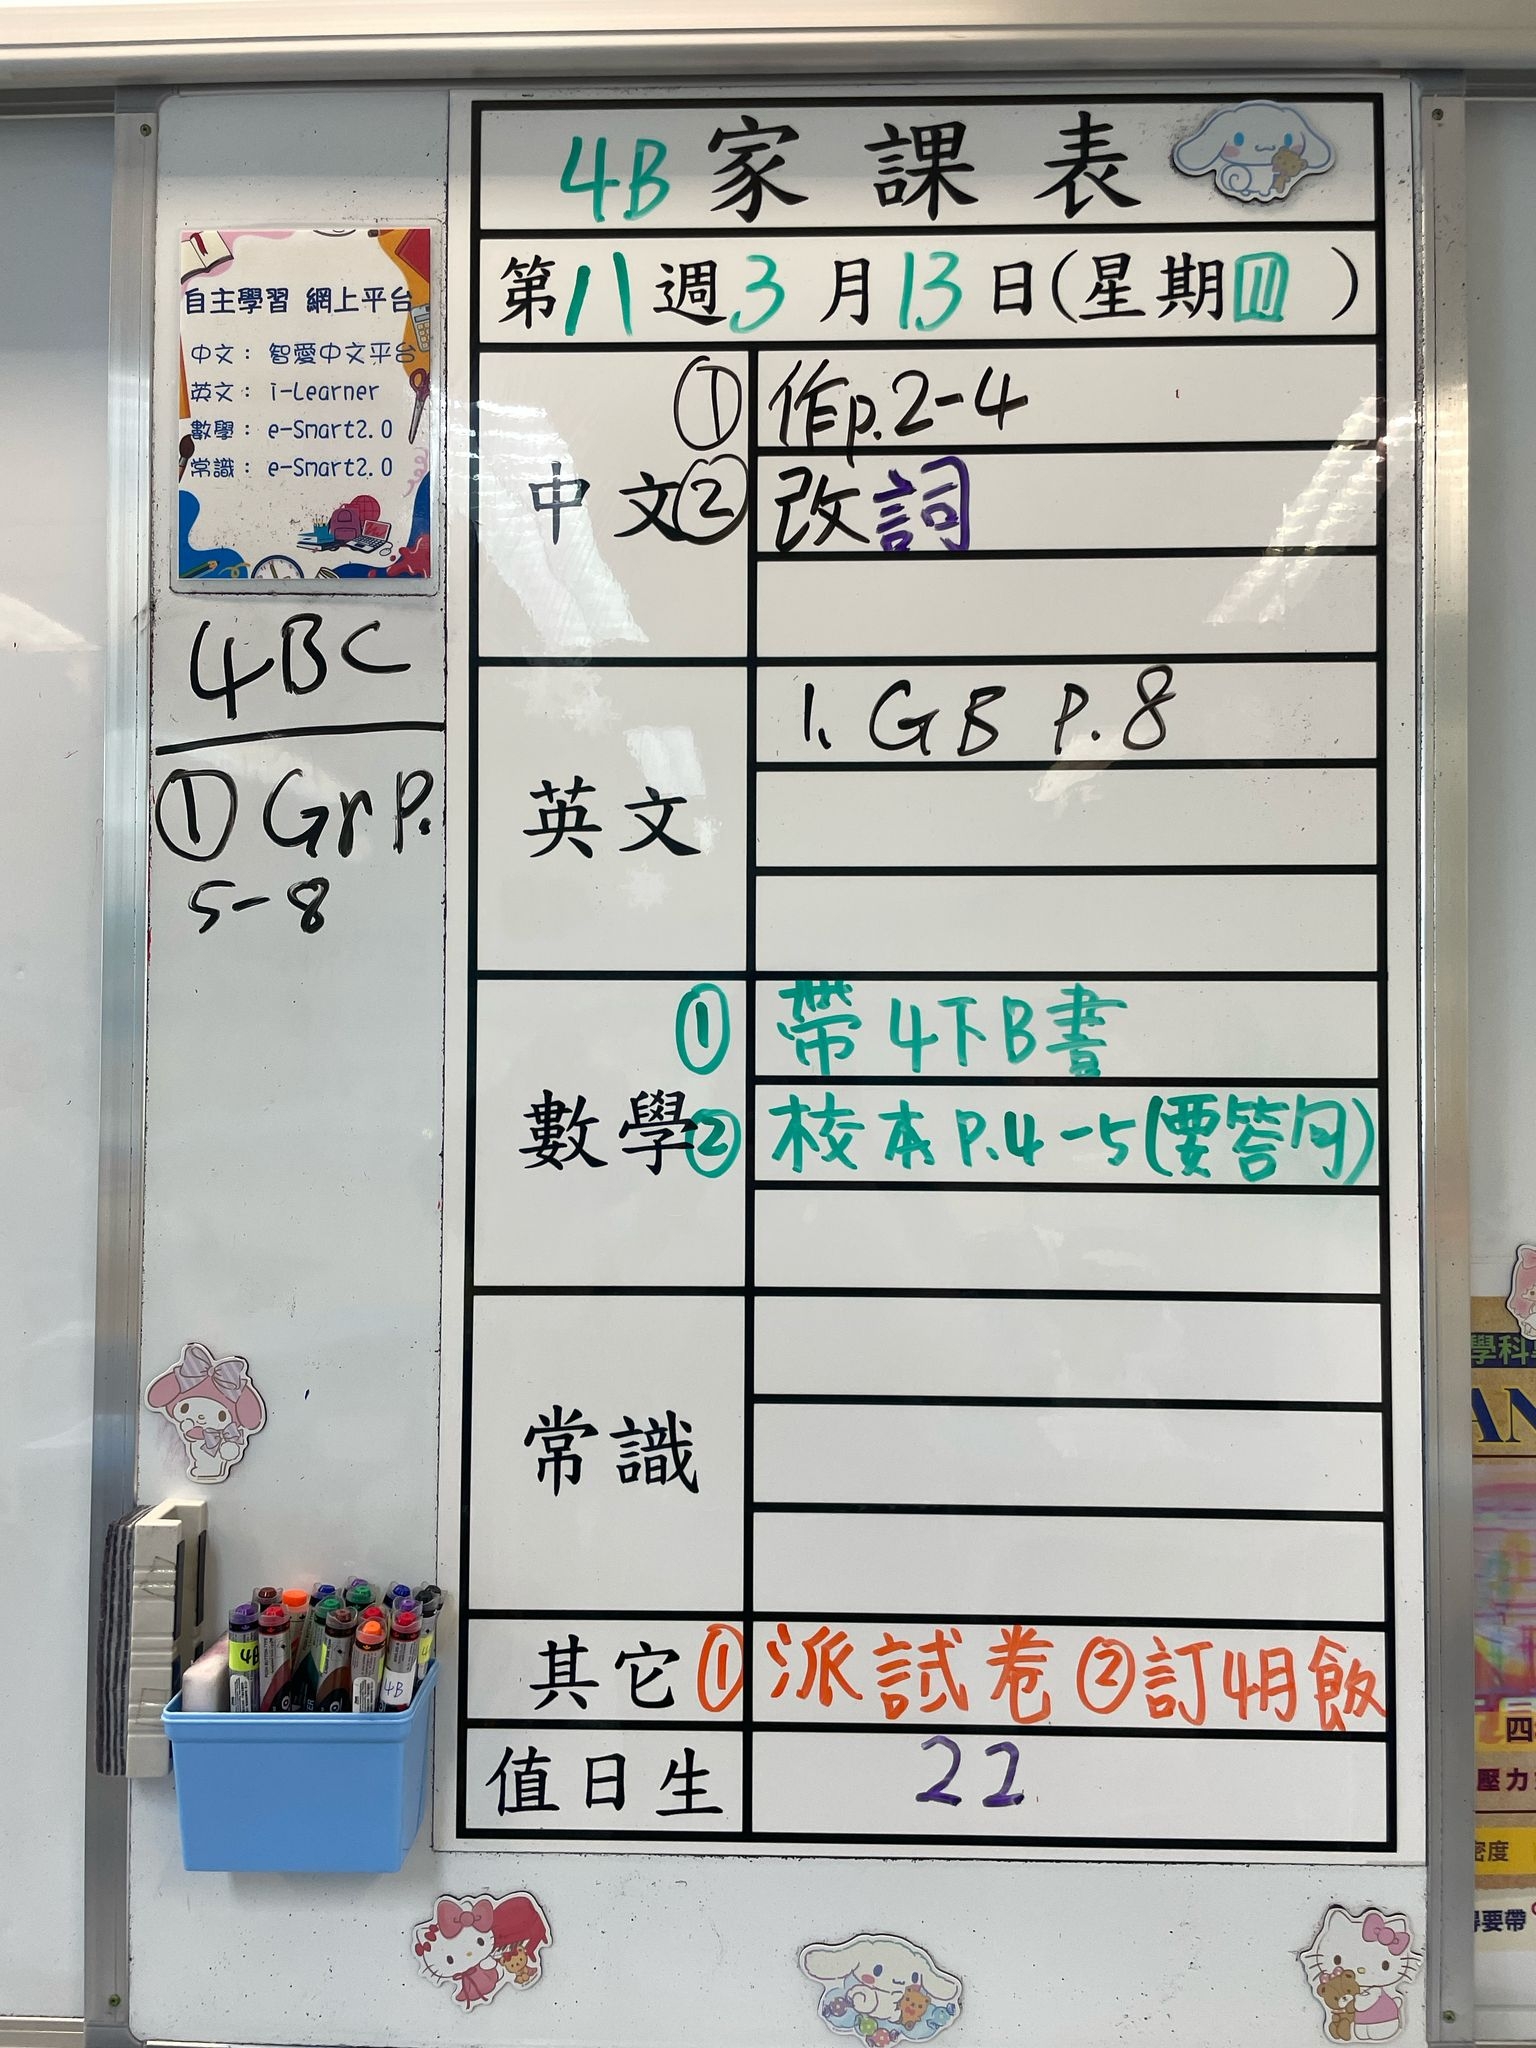 4B家課表
第八週3月13日(星期四)
自主學習 網上平台
中文： 智愛中文平台
英文： i-Learner
數學： e-Smart2.0
常識： e-Smart2.0
4BC
① Gr P.
5-8
中文
① 作p.2-4
② 改詞
英文
1. GB P.8
數學
① 帶4下B書
② 校本P.4-5(要答句)
常識
其它
① 派試卷 ② 訂4月飯
值日生
22
4B
學科
AN
四
壓力
密度
要帶